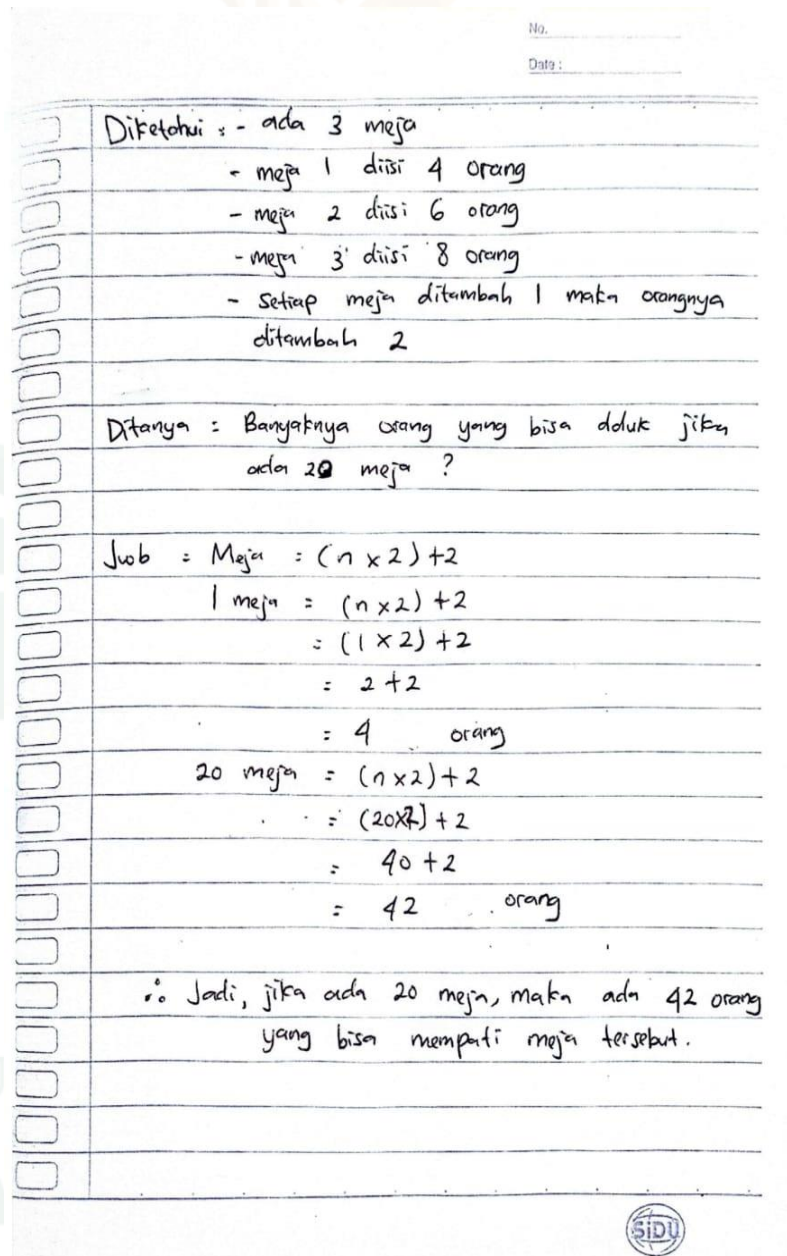 No.
Date :
Diketahui : - ada 3 meja
- meja 1 diisi 4 orang
- meja 2 diisi 6 orang
- meja 3 diisi 8 orang
- Setiap meja ditambah 1 maka orangnya
ditambah 2
Ditanya : Banyaknya orang yang bisa dduk jika
ada 20 meja ?
Jwb : Meja : (n x 2) +2
1 meja = (n x2) +2
= (1 x 2) +2
= 2 +2
= 4 orang
20 meja = (n x2) + 2
= (20x2) + 2
= 40 +2
= 42 orang
∴ Jadi, jika ada 20 meja, maka ada 42 orang
yang bisa mempati meja tersebut.
SiDU